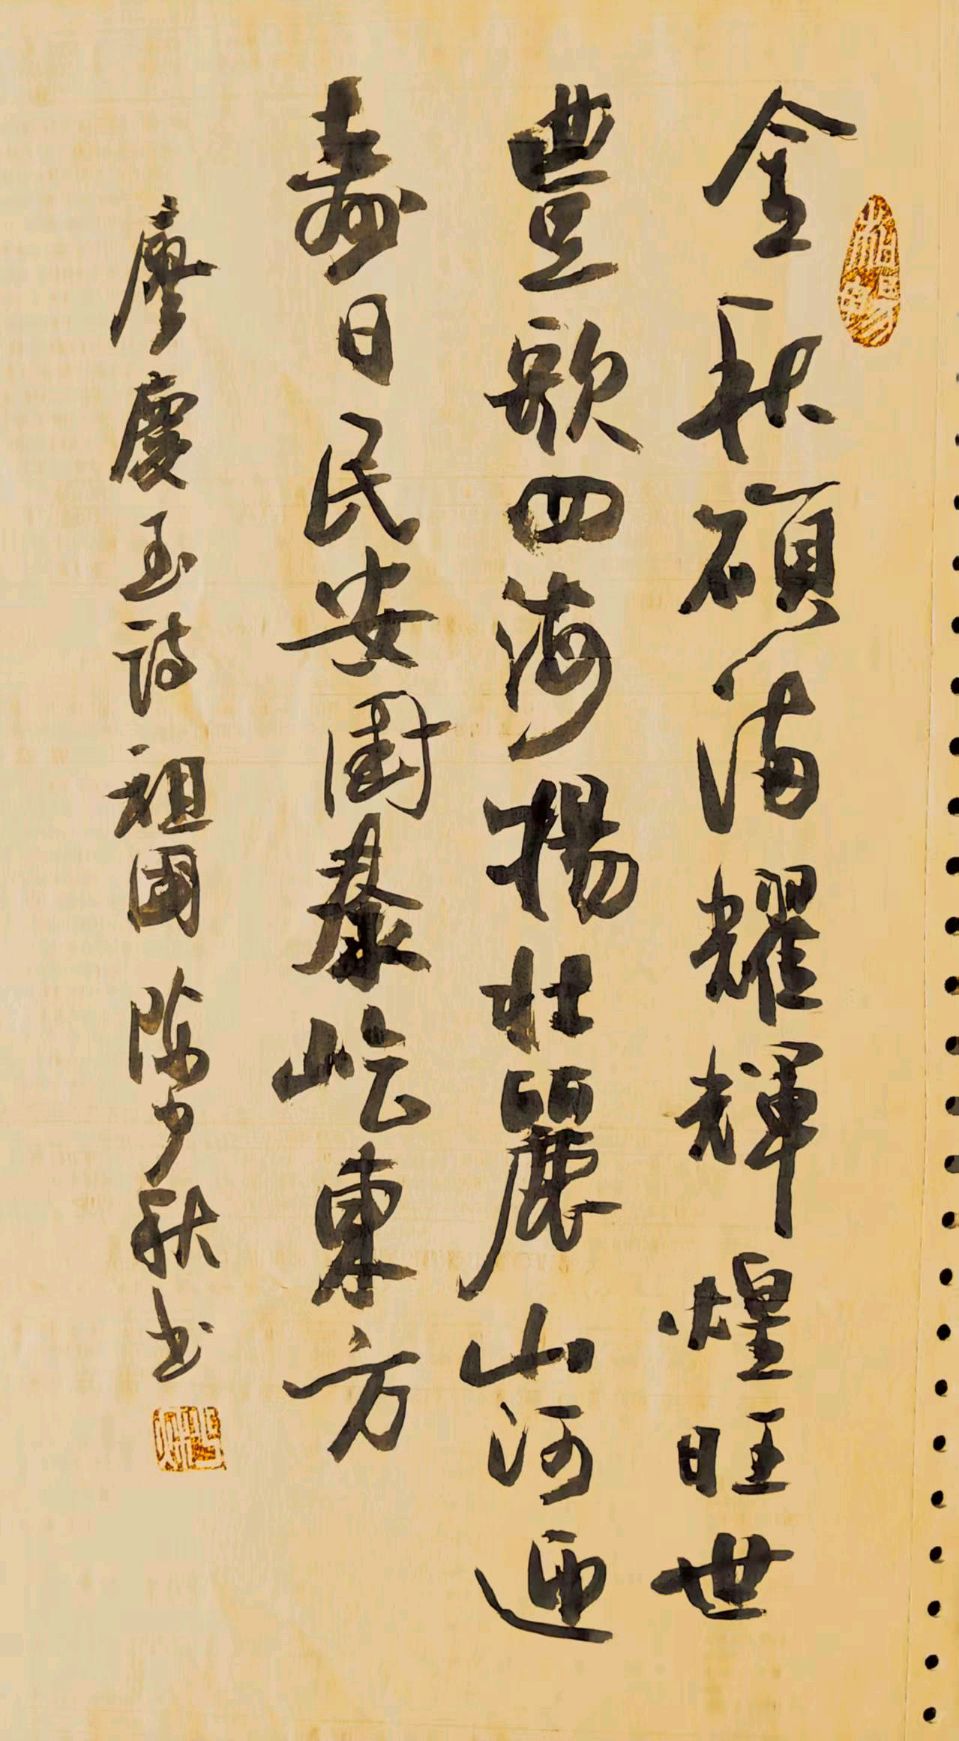 金秋碩满耀輝煌旺世
豊歌四海揚壮麗山河迎
壽日民安國泰屹東方
廖慶玉詩祖國 陈少秋书